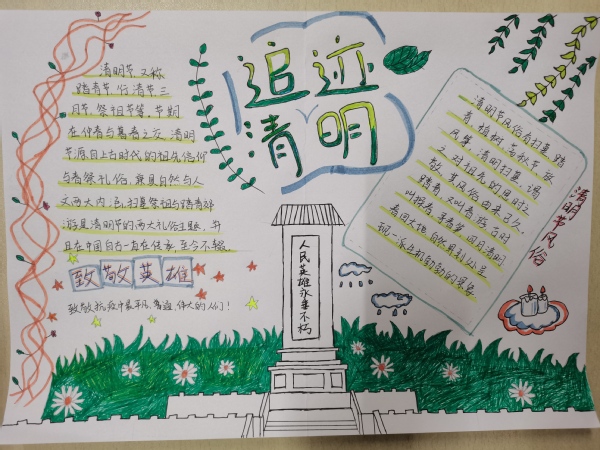 追迹
清明
清明节,又称
踏青节,俗清节三
月节,祭祖节等,节期
在仲春与暮春之交,清明
节源自上古时代的祖先信仰
与春祭礼俗,兼具自然与人
文两大内涵,扫墓祭祖与踏青郊
游是清明节的两大礼俗主题,并
且在中国自古一直在传承,至今不辍
致敬英雄
致敬抗疫中最平凡、伟大的人们!
人民英雄永垂不朽
清明节风俗有扫墓,踏
青,植树,荡秋节,放
风筝,清明扫墓,谓
之对祖先的思时之
敬,其风俗由来已久,
踏青,又叫春游,古时
叫探春,寻春等,四月清明
春回大地,自然界到处呈
现一派生机勃勃的景象
清明节风俗